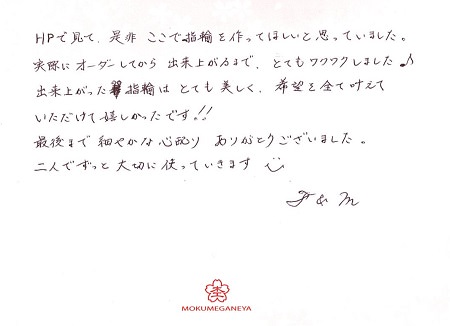 HPで見て、是非 ここで指輪を作ってほしいと思っていました。
実際にオーダーしてから 出来上がるまで、とてもワクワクしました♪
出来上がった 指輪は とても 美しく、希望を全て叶えて
いただけて嬉しかったです!!
最後まで 細やかな心配り ありがとうございました。
二人でずっと 大切に 使っていきます
F & M
MOKUMEGANEYA